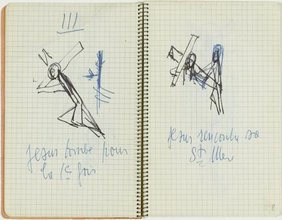 III
Jesus tombe pour
la 1re fois
Jesus rencontre sa
Ste Mere